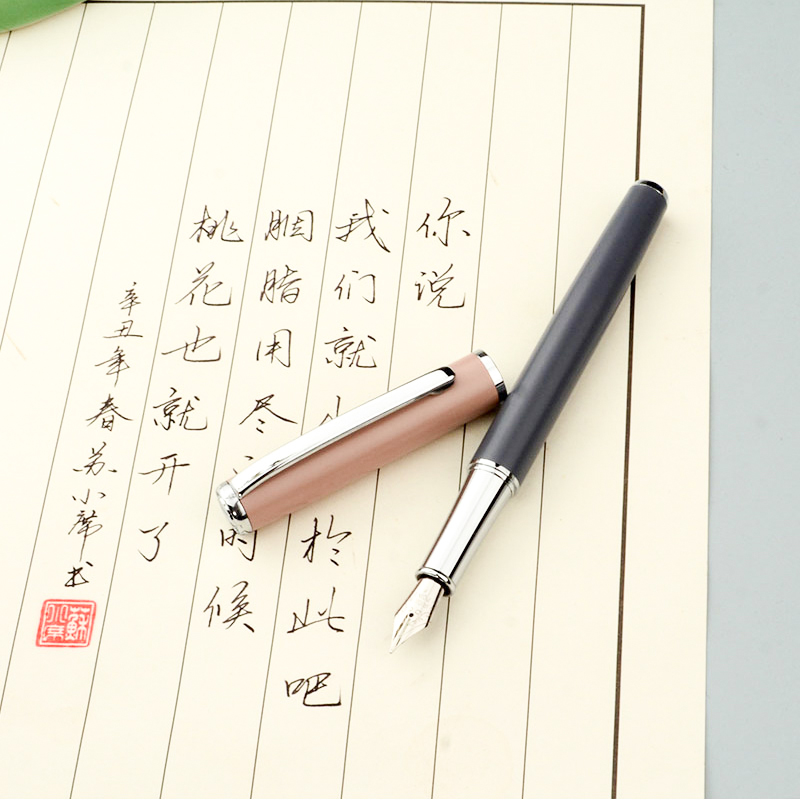 你说
我们就於此吧
胭脂用尽时候
桃花也就开了
辛丑年春苏小席书
蘇小席